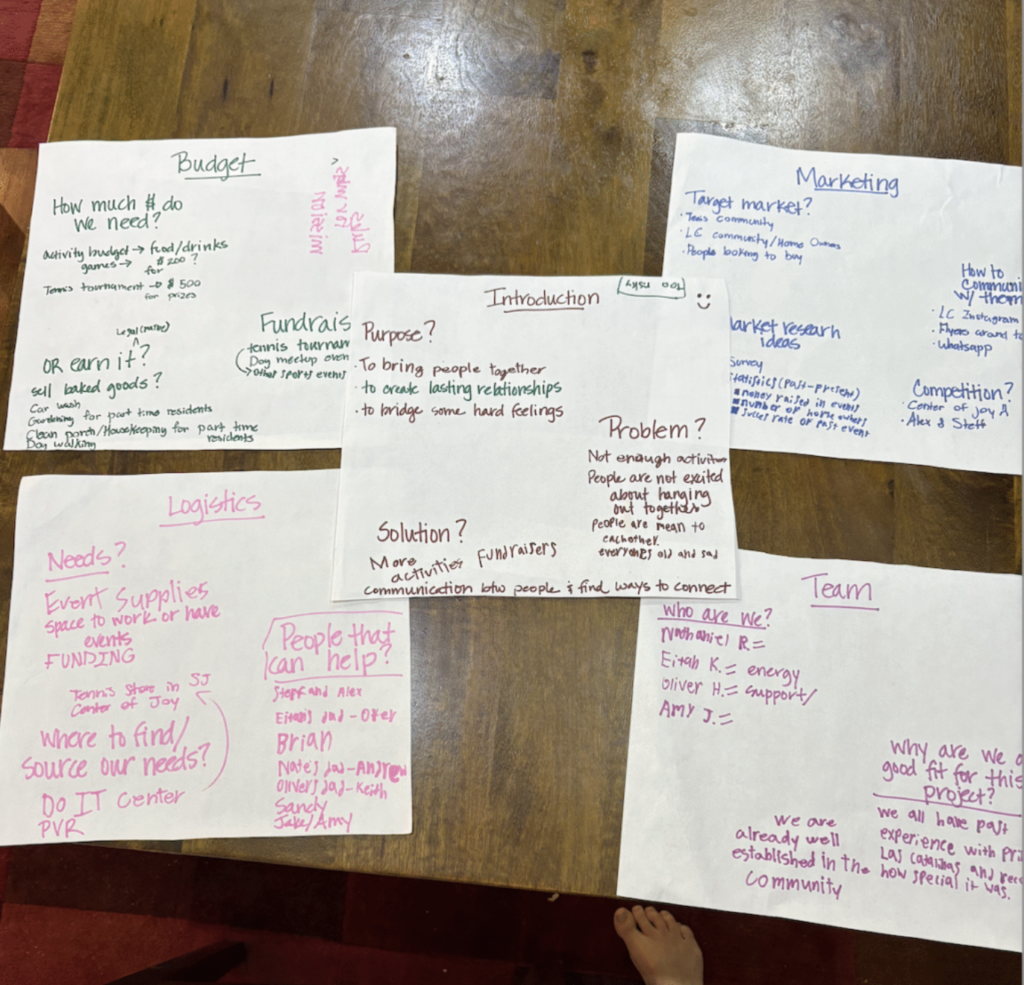 Budget
How much $ do
we need?
activity budget → food/drinks
games → $200?
for
Tennis tournament → $500
for prizes
Legal (maybe)
OR earn it?
sell baked goods?
Car wash
Gardening for part time residents
Clean porch/Housekeeping for part time
residents
Dog walking
Fundrais
tennis tournam
Dog meetup even
other sports events
Marketing
Target market?
· Tenis community
· LC community/Home Owners
· People looking to buy
How to
communi
w/ them
· LC Instagram
· Flyers around to
· Whatsapp
arket research
ideas
survey
statistics (past-present)
money raised in events
number of home owners
succes rate of past event
Competition?
· Center of joy A
· Alex & Steff
Introduction
too risky
Purpose?
· To bring people together
· to create lasting relationships
· to bridge some hard feelings
Problem?
Not enough activities
People are not excited
about hanging
out together
People are mean to
eachother.
everyones old and sad
Solution?
More
activities
Fundraisers
communication btw people & find ways to connect
Logistics
Needs?
Event supplies
space to work or have
events
FUNDING
Tennis store in SJ
Center of Joy
where to find/
source our needs?
DO IT center
PVR
People that
can help?
Stepf and Alex
Eitan's dad - Ofer
Brian
Nate's dad - Andrew
Oliver's dad - Keith
Sandy
Jake/Amy
Team
who are we?
Nathaniel R. =
Eitan K. = energy
Oliver H. = support/
Amy J. =
why are we a
good fit for this
project?
we all have past
experience with pri
Las catalinas and rec
how special it was.
we are
already well
established in the
community